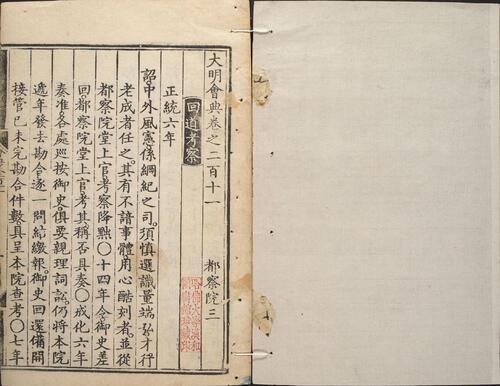 大明會典卷之二百十一
都察院三
回道考察
正統六年
詔中外風憲係綱紀之司須慎選識量端弘才行
老成者任之其有不諳事體用心酷刻者並從
都察院堂上官考察降黜○十四年令御史差
回都察院堂上官考其稱否具奏○成化六年
奏准各處巡按御史俱要親理詞訟仍將本院
遞年發去勘合逐一問結繳報御史回還備開
接管已未完勘合件數具呈本院查考○七年